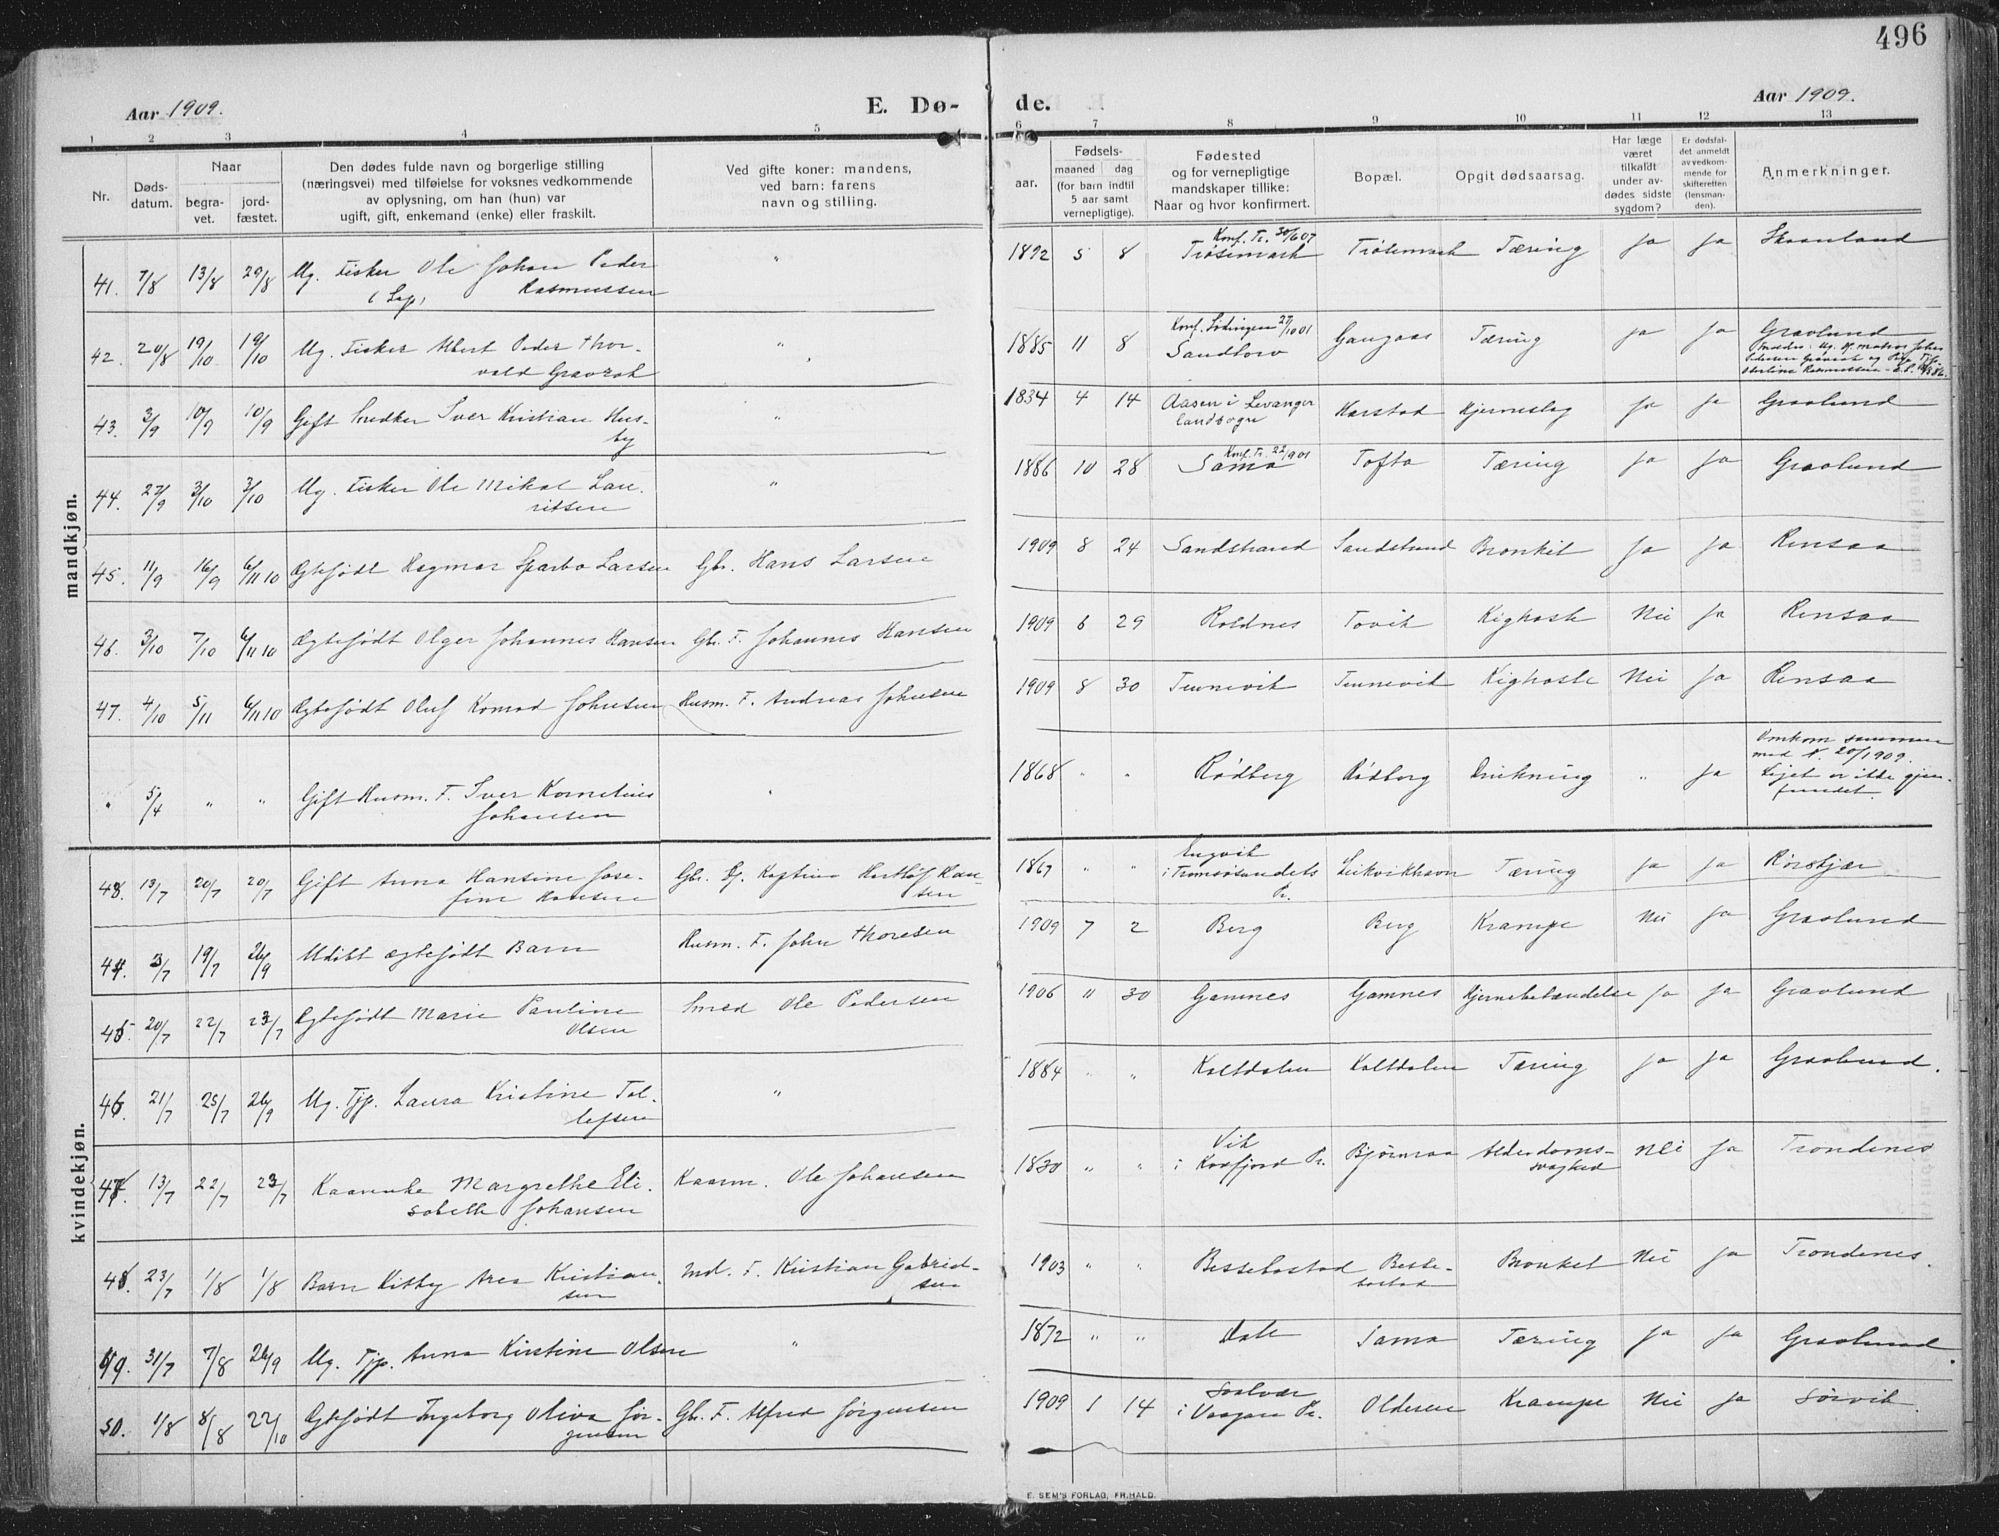 496
Aar 1909.
E. Dø-
de.
Aar 1909.
1 2 3 4 5 6 7 8 9 10 11 12 13
Nr.
Døds-
datum.
Naar
begra-
vet.
jord-
fæstet.
Den dødes fulde navn og borgerlige stilling
(næringsvei) med tilføielse for voksnes vedkommende
av oplysning, om han (hun) var
ugift, gift, enkemand (enke) eller fraskilt.
Ved gifte koner: mandens,
ved barn: farens
navn og stilling.
Fødsels-
aar.
maaned dag
(for barn indtil
5 aar samt
vernepligtige).
Fødested
og for vernepligtige
mandskaper tillike:
Naar og hvor konfirmert.
Bopæl.
Opgit dødsaarsag.
Har læge
været
tilkaldt
under av-
dødes sidste
sygdom?
Er dødsfal-
det anmeldt
av vedkom-
mende for
skifteretten
(lensman-
den).
Anmerkninger.
mandkjøn.
41. 7/8 13/8 29/8 Ug. Fisker Ole Johan Peder
(Lap) Rasmussen
" 1892 5 8 Konf. Tr. 30/6 07
Trøsemark Trøsemark Tæring ja ja Skaanland
42. 20/8 19/10 19/10 Ug. Fisker Albert Peder Thor-
vald Gravrok
" 1885 11 8 Konf. Lødingen 27/10 01
Sandtorv Gangaas Tæring ja ja Gravlund
43. 3/9 10/9 10/9 Gift Snedker Iver Kristian Hus-
by
" 1834 4 14 Aasen i Levanger
landsogn Harstad Hjerneslag ja ja Gravlund
44. 27/9 3/10 3/10 Ug. Fisker Ole Mikal Lau-
ritsen
" 1886 10 28 Konf. Tr. 22/9 01
Sama Tofta Tæring ja ja Gravlund
45. 11/9 16/9 6/11 10 Ægtefødt Dagmar Sparbo Larsen Gbr. Hans Larsen 1909 8 24 Sandstrand Sandstrand Bronkit ja ja Rensaa
46. 3/10 7/10 6/11 10 Ægtefødt Olger Johannes Hansen Gbr. F. Johannes Hansen 1909 6 29 Roldnes Tovik Kighoste Nei ja Rensaa
47. 4/10 5/11 6/11 10 Ægtefødt Oluf Konrad Johnsen Husm. F. Andreas Johnsen 1909 8 30 Tennevik Tennevik Kighoste Nei ja Rensaa
" 5/4 " " Gift Husm. F. Iver Kornelius
Johansen
" 1868 " " Rødberg Rødberg Drukning " ja Omkom sammen
med N. 20/1909.
Liget er ikke gjen-
fundet.
kvindekjøn.
48. 13/7 20/7 20/7 Gift Anna Hansine Jose-
fine Hansen
1867 " " Engvik
i Tromsøsundets
Pr. Leikvikhavn Tæring ja ja Rørstjær
44. 3/7 19/7 26/9 Udøbt ægtefødt Barn Husm. F. John Thoresen 1909 7 2 Berg Berg Krampe Nei ja Gravlund
45. 20/7 22/7 23/7 Ægtefødt Marie Pauline
Olsen
Smed Ole Pedersen 1906 11 30 Gamnes Gamnes Hjernebetændelse ja ja Gravlund
46. 21/7 25/7 26/9 Ug. Tjp. Laura Kristine Tol-
lefsen
" 1884 " " Kaltdalen Kaltdalen Tæring ja ja Gravlund.
47. 13/7 22/7 23/7 Kaarenke Margrethe Eli-
sabeth Johansen
Kaarm. Ole Johansen 1830 " " Vik
i Kvæfjord Pr. Bjørnraa Alderdoms-
svaghed Nei ja Trondenes
48. 23/7 1/8 1/8 Barn Kitty Area Kristian-
sen
Ind. F. Kristian Gabriel-
sen
1903 " " Bessebostad Besse-
bostad Bronkit Nei ja Trondenes.
49. 31/7 7/8 26/9 Ug. Tjp. Anna Kirstine Olsen " 1872 " " Dale Sama Tæring ja ja Gravlund.
50. 1/8 8/8 22/10 Ægtefødt Ingeborg Oliva Jør-
gensen
Gbr. F. Alfred Jørgensen 1909 1 14 Svolvær
i Vaagan Pr. Olderen Krampe Nei ja Sørvik.
E. SEM'S FORLAG, FR.HALD.